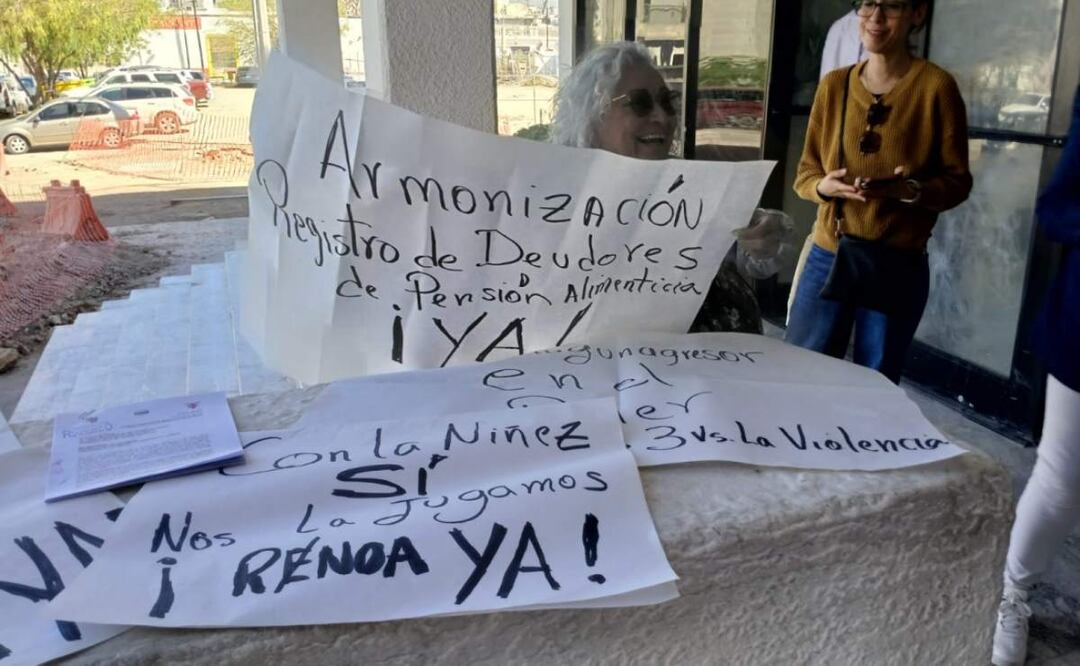 ArmonizACIÓN
Registro de Deudores
de Pensión Alimenticia
¡YA!
agresor
en el
3 vs. La Violencia
Con la NiñEZ
SÍ
Nos La Jugamos
¡RENOA YA!